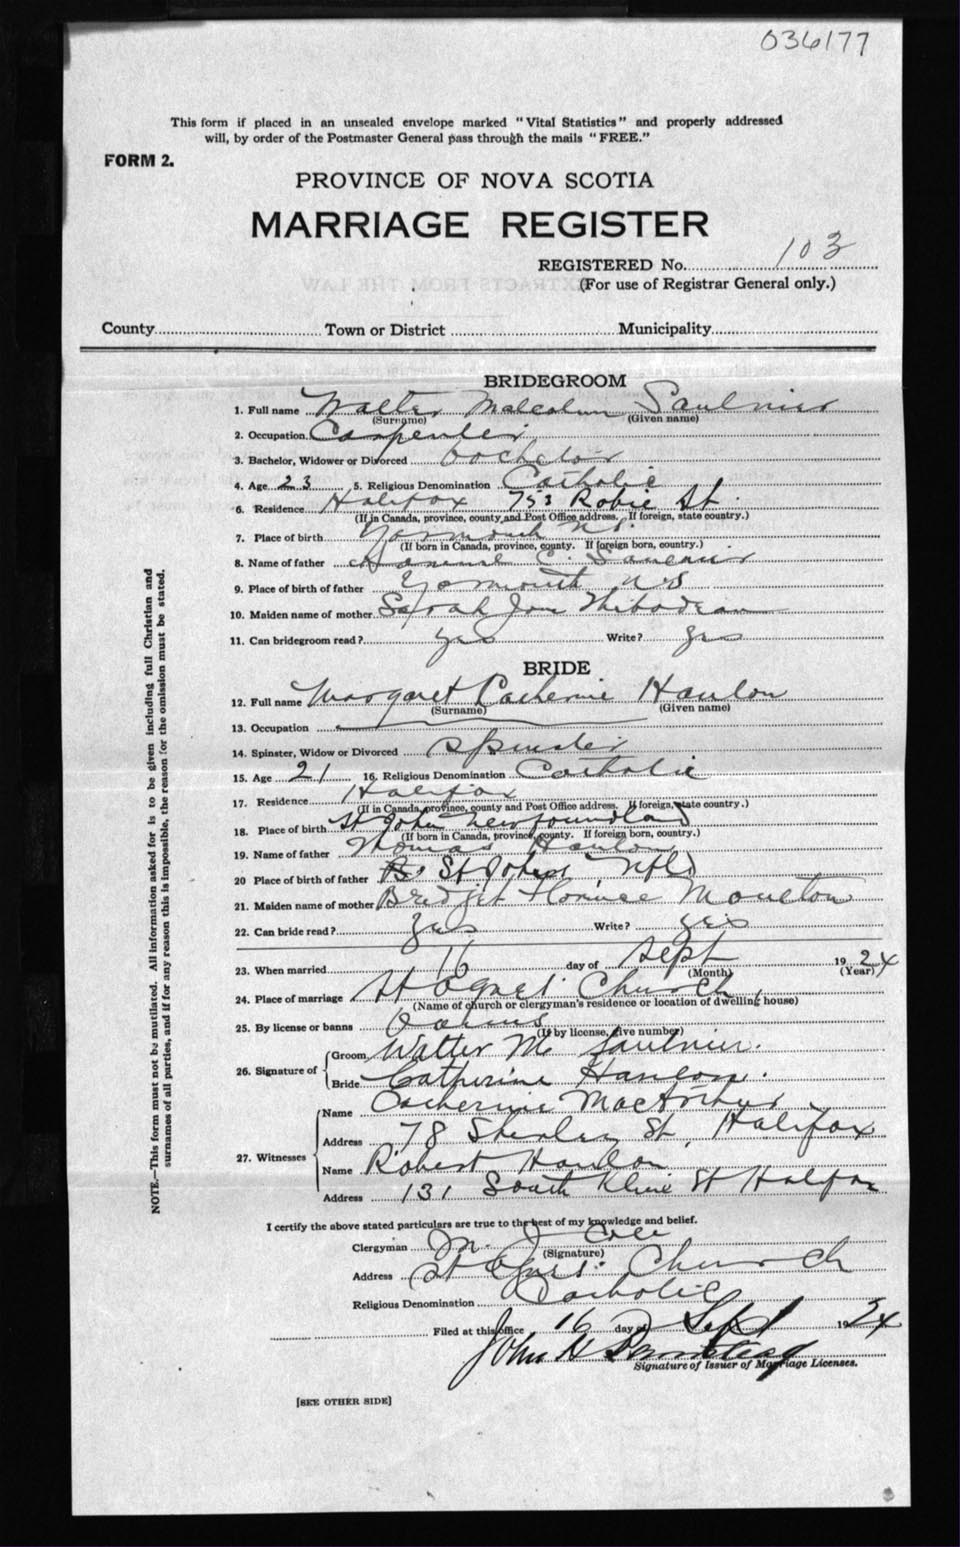 036177
This form if placed in an unsealed envelope marked "Vital Statistics" and properly addressed
will, by order of the Postmaster General pass through the mails "FREE."
FORM 2.
PROVINCE OF NOVA SCOTIA
MARRIAGE REGISTER
REGISTERED No. 103
(For use of Registrar General only.)
County Town or District Municipality
BRIDEGROOM
1. Full name Walter Malcolm Saulnier
(Surname) (Given name)
2. Occupation. Carpenter
3. Bachelor, Widower or Divorced bachelor
4. Age 23 5. Religious Denomination Catholic
6. Residence Halifax 753 Robie St.
(If in Canada, province, county and Post Office address. If foreign, state country.)
7. Place of birth Yarmouth N.S.
(If born in Canada, province, county. If foreign born, country.)
8. Name of father C. Saulnier
9. Place of birth of father Yarmouth N S
10. Maiden name of mother Sarah Jane Thibodeau
11. Can bridegroom read? yes Write? yes
BRIDE
12. Full name Margaret Catherine Hanlon
(Surname) (Given name)
13. Occupation
14. Spinster, Widow or Divorced Spinster
15. Age 21 16. Religious Denomination Catholic
17. Residence Halifax
(If in Canada, province, county and Post Office address. If foreign, state country.)
18. Place of birth St John Newfoundland
(If born in Canada, province, county. If foreign born, country.)
19. Name of father Thomas Hanlon
20 Place of birth of father St Johns, Nfld
21. Maiden name of mother Bridjet Florence Moulton
22. Can bride read? yes Write? yes
23. When married 16 day of Sept 1924
(Month) (Year)
24. Place of marriage St Agnes Church,
(Name of church or clergyman's residence or location of dwelling house)
25. By license or banns
(If by license, give number)
26. Signature of Groom Walter M Saulnier.
Bride Catherine Hanlon.
27. Witnesses Name Catherine MacArthur
Address 78 St, Halifax
Name Robert Hanlon
Address 131 South Kline St Halifax
I certify the above stated particulars are true to the best of my knowledge and belief.
Clergyman M. J.
(Signature)
Address St Agnes Church
Religious Denomination Catholic
Filed at this office 16 day of Sept 1924
John H
Signature of Issuer of Marriage Licenses.
[SEE OTHER SIDE]
NOTE.—This form must not be mutilated. All information asked for is to be given including full Christian and
surnames of all parties, and if for any reason this is impossible, the reason for the omission must be stated.